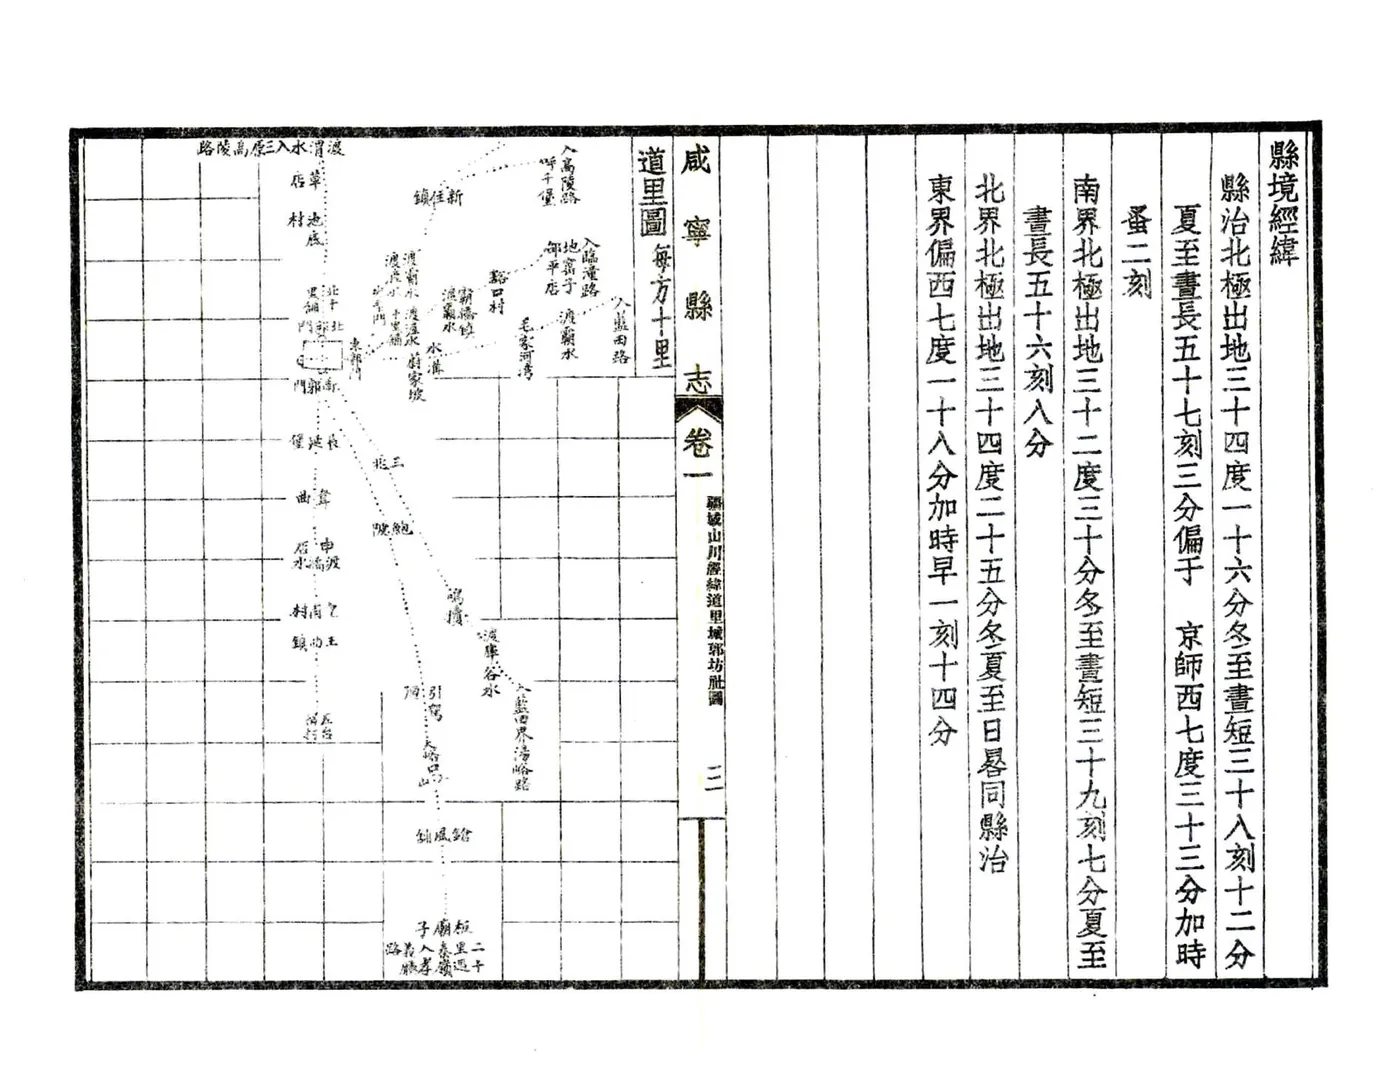 縣境經緯
縣治北極出地三十四度一十六分冬至晝短三十八刻十二分
夏至晝長五十七刻三分偏于　京師西七度三十三分加時
蚤二刻
南界北極出地三十二度三十分冬至晝短三十九刻七分夏至
晝長五十六刻八分
北界北極出地三十四度二十五分冬夏至日晷同縣治
東界偏西七度一十八分加時早一刻十四分
咸寧縣志
卷一
疆域山川經緯道里城郭坊社圖
二
道里圖每方十里
入高陵路
新住鎮
渡渭水入三原高陵路
草店
池底村
入臨潼路
地窑子
邵平店
豁口村
霸橋鎮
渡霸水
渡霸水
渡滻水
入藍田路
渡霸水
毛家河灣
水溝
渡滻水
十里鋪
東郭門
南郭門
三兆
鮑陂
韋曲
鳴犢
渡庫谷水
入藍田界湯峪路
引駕
大峪口
王曲鎮
五台
二十里過秦嶺入孝義廳路